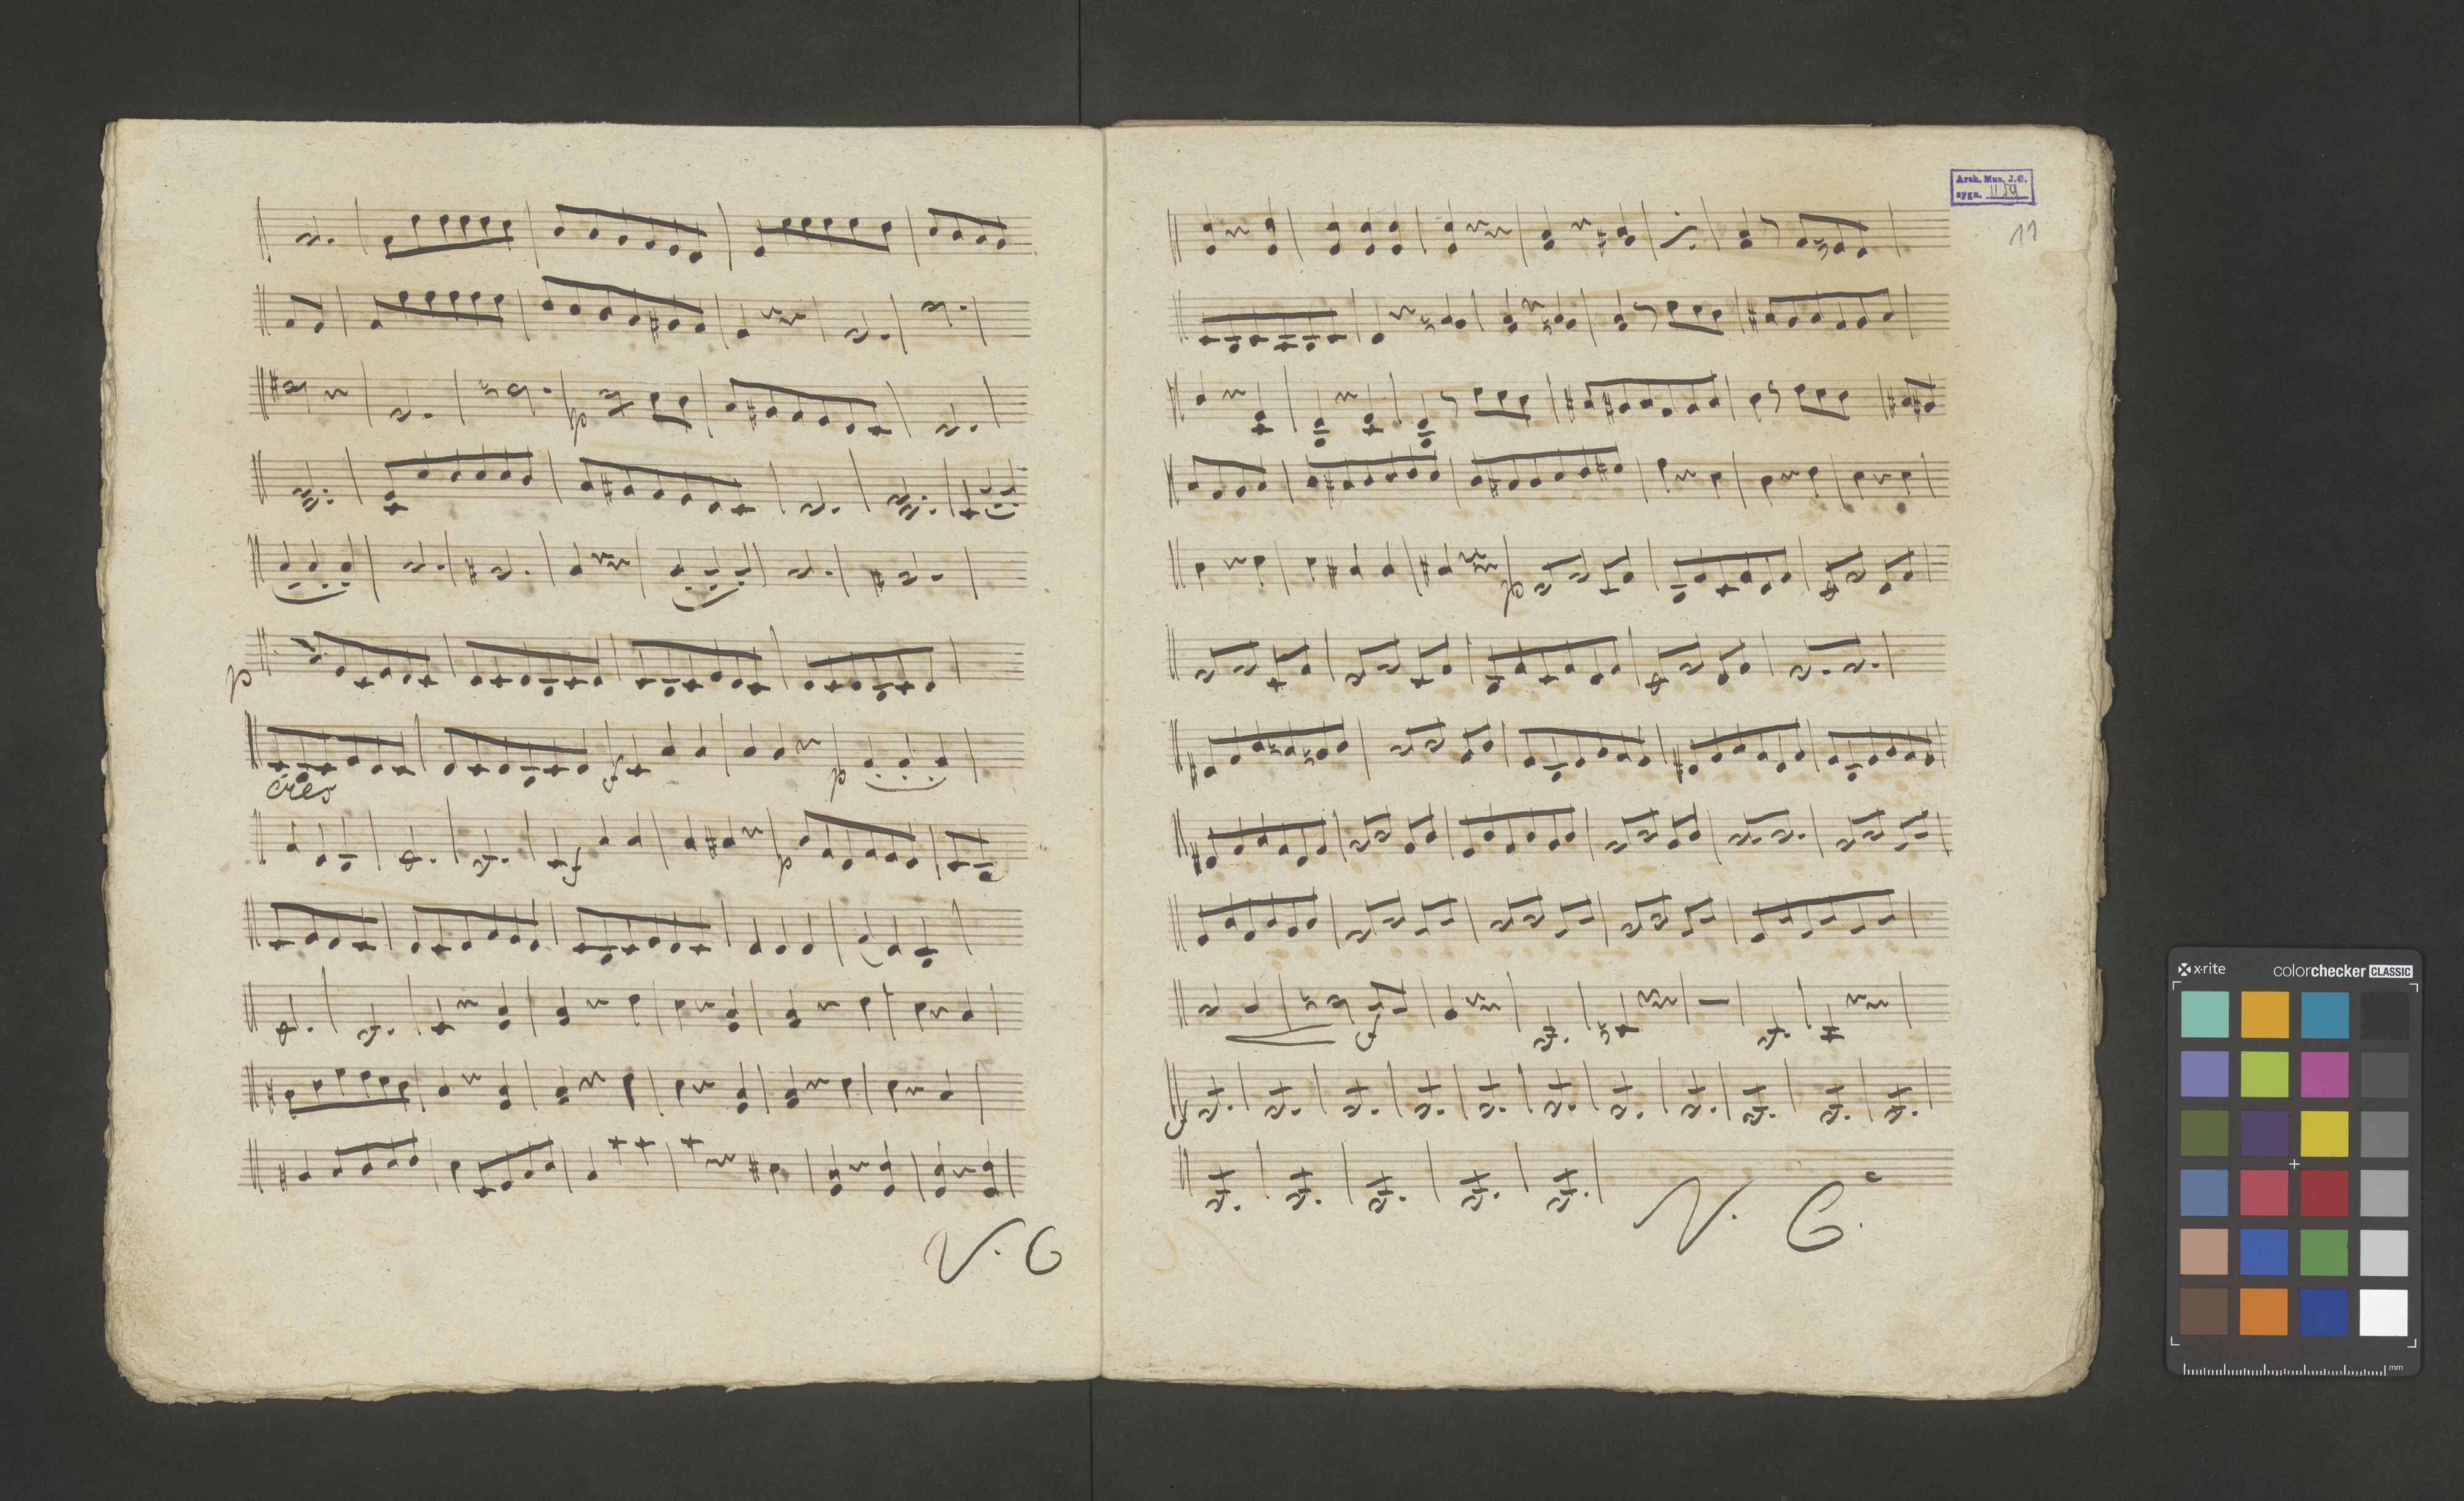 p
p
cres
f
p
f
p
V. C
Arch. Mus. J.G.
sygn. II 29
11
p
f
f
V. C.
x·rite
colorchecker CLASSIC
mm